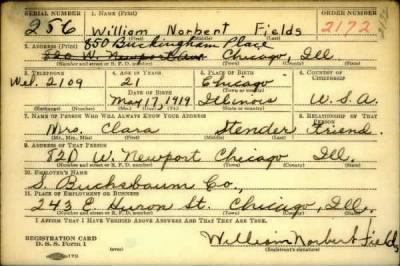 SERIAL NUMBER 1. NAME (Print) ORDER NUMBER
256 William Norbert Fields 2172
850 Buckingham Place
2. ADDRESS (Print)
820 W. Newport Ave Chicago, Ill
(Number and street or R. F. D. number) (Town) (County) (State)
3. TELEPHONE 4. AGE IN YEARS 5. PLACE OF BIRTH 6. COUNTRY OF CITIZENSHIP
21 Chicago
Wel. 2109 DATE OF BIRTH
May 17, 1919 Illinois U.S.A.
7. NAME OF PERSON WHO WILL ALWAYS KNOW YOUR ADDRESS 8. RELATIONSHIP OF THAT PERSON
Mrs. Clara Stender Friend.
(Mr., Mrs., Miss) (First) (Middle) (Last)
9. ADDRESS OF THAT PERSON
820 W. Newport Chicago Ill,
(Number and street or R. F. D. number) (Town) (County) (State)
10. EMPLOYER'S NAME
S. Buchsbaum Co.,
11. PLACE OF EMPLOYMENT OR BUSINESS
243 E. Huron St. Chicago, Ill.
(Number and street or R. F. D. number) (Town) (County) (State)
I AFFIRM THAT I HAVE VERIFIED ABOVE ANSWERS AND THAT THEY ARE TRUE.
REGISTRATION CARD
D. S. S. Form 1
William Norbert Fields
(Registrant's signature)